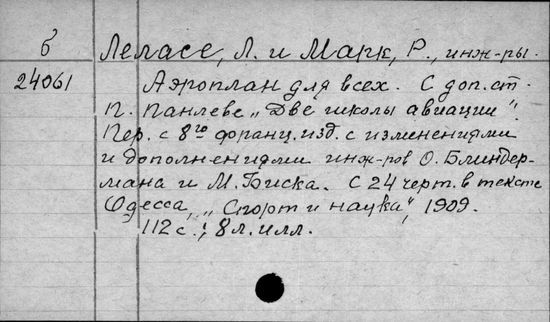 б Леласе, Л. и Марк, Р., инж-ры.
24061 Аэроплан для всех. С доп. ст.
П. Панлеве „Две школы авиации“.
Пер. с 8го франц. изд. с изменениями
и дополнениями инж-ров О. Блиндер-
мана и М. Биска. С 24 черт. в тексте
Одесса, „Спорт и наука“, 1909.
112 с.; 8 л. илл.